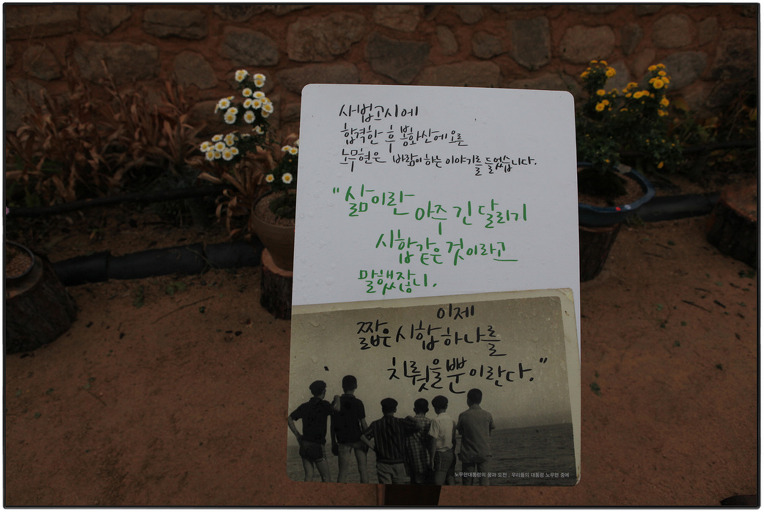 사법고시에
합격한 후 봉화산에 오른
노무현은 바람이 하는 이야기를 들었습니다.
"삶이란
아주 긴 달리기
시합같은 것이라고
말했잖니.
이제
짧은 시합 하나를
치뤘을 뿐이란다."
노무현대통령의 꿈과 도전, 우리들의 대통령 노무현 중에